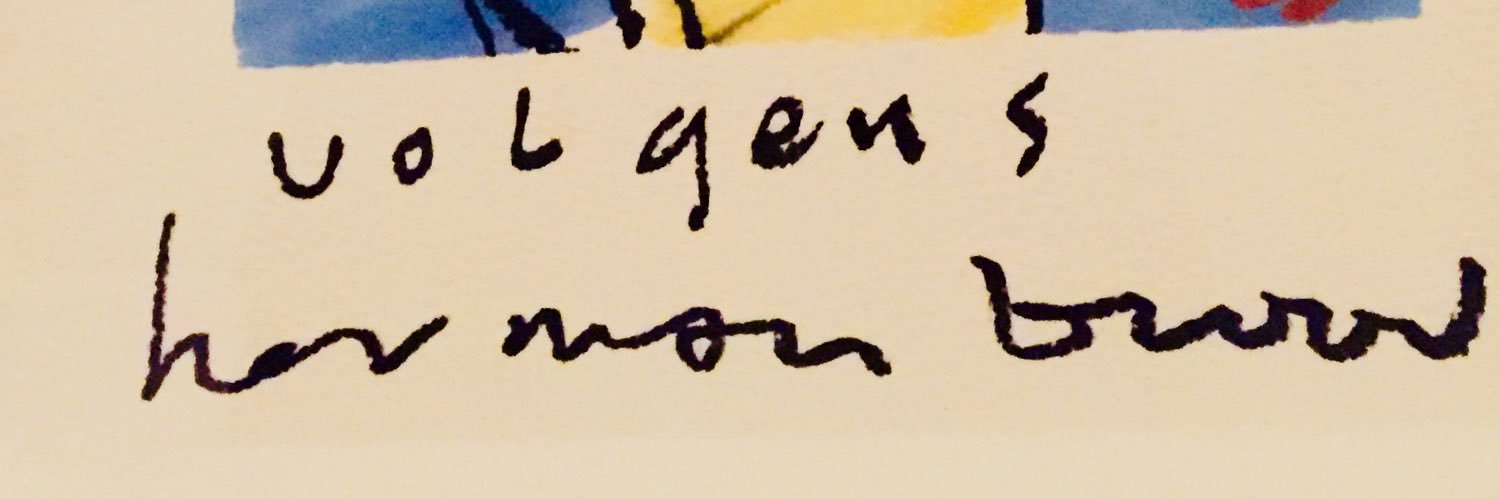 volgens
herman brood